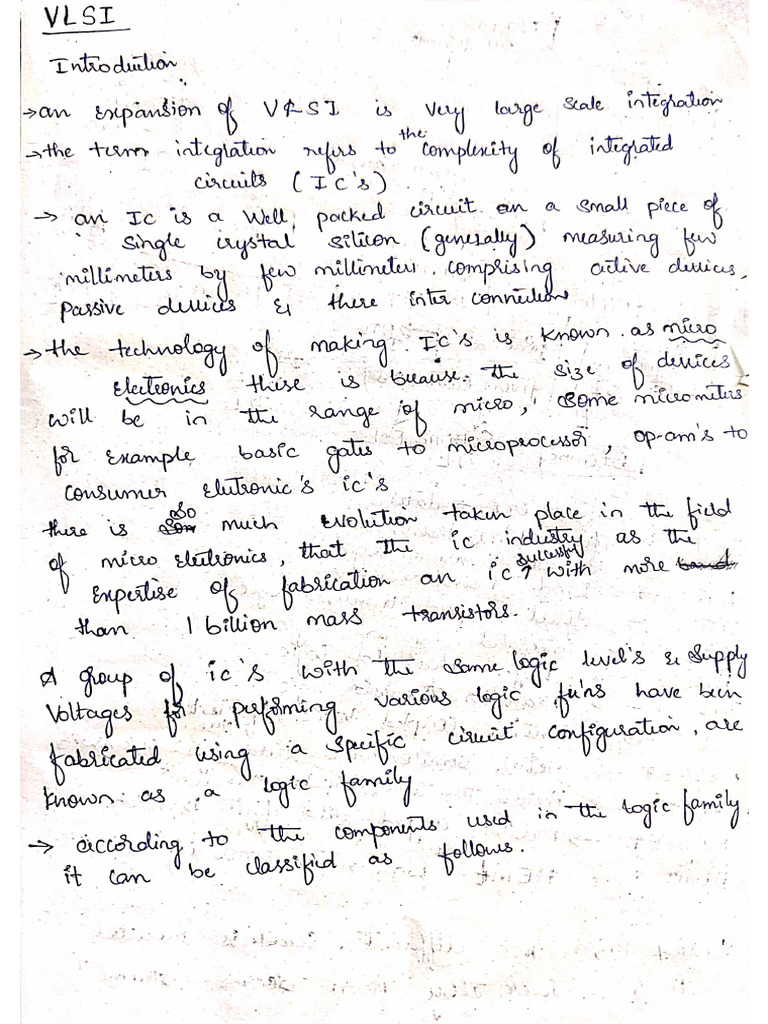 VLSI
Introduction
→ an expansion of VLSI is very large scale integration
→ the term integration refers to the complexity of integrated
circuits (IC's)
→ an Ic is a well packed circuit on a small piece of
single crystal silicon (generally) measuring few
millimeters by few millimeters comprising active devices,
passive devices & there inter connections
→ the technology of making IC's is known as micro
electronics these is because the size of devices
will be in the range of micro, some micrometers
for example basic gates to microprocessor, op-am's to
consumer eletronic's ic's
there is so much evolution taken place in the field
of micro eletronics, that the ic industry as the
expertise of fabrication an ic successfu with more
than 1 billion mass transistors.
A group of ic's with the same logic level's & supply
voltages for performing various logic fu'ns have been
fabricated using a specific circuit configuration, are
known as a logic family
→ according to the components used in the logic family
it can be classified as follows.